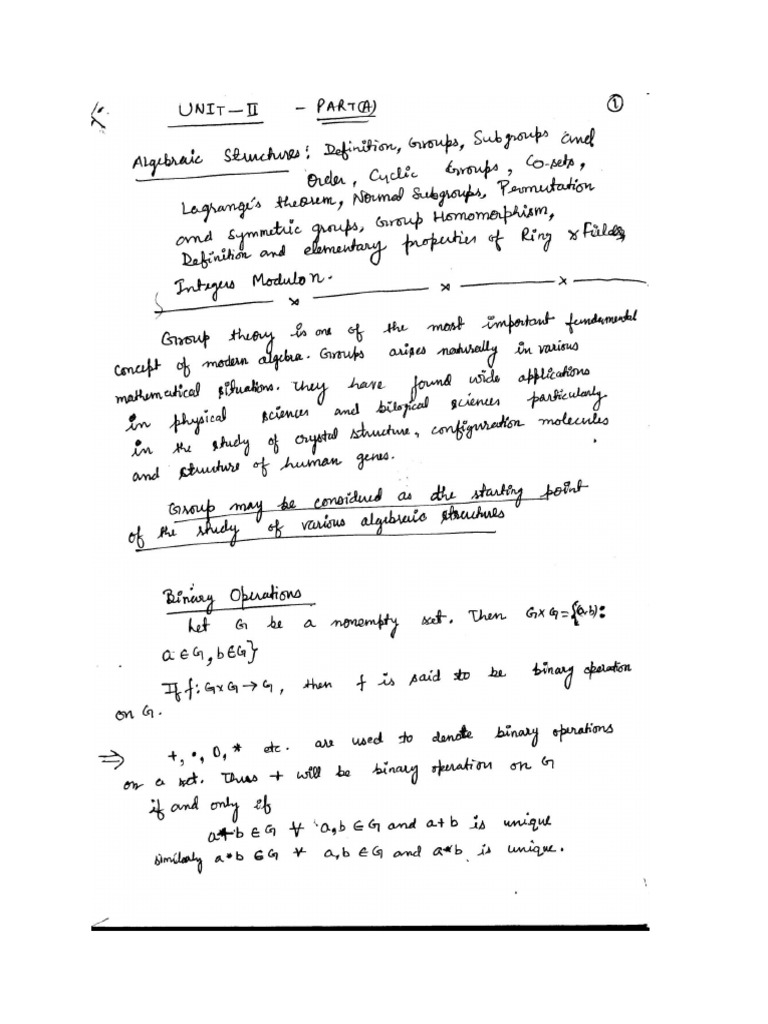 UNIT-II - PART(A) ①
Algebraic Structures: Definition, Groups, Subgroups and
Order, Cyclic Groups, Co-sets,
Lagrange's theorem, Normal Subgroups, Permutation
and Symmetric groups, Group Homomorphism,
Definition and elementary properties of Ring & Fields,
Integers Modulo n.
Group theory is one of the most important fundamental
concept of modern algebra. Groups arises naturally in various
mathematical situations. They have found wide applications
in physical sciences and bilogical sciences particularly
in the study of crystal structure, configuration molecules
and structure of human genes.
Group may be considred as the starting point
of the study of various algebraic structures
Binary Operations
Let G be a nonempty set. Then G×G={(a,b):
a∈G, b∈G}
If f: G×G→G, then f is said to be binary operation
on G.
⇒ +, ·, 0, * etc. are used to denote binary operations
on a set. Thus + will be binary operation on G
if and only if
a+b ∈ G ∀ a,b ∈ G and a+b is unique
similarly a*b ∈ G ∀ a,b ∈ G and a*b is unique.